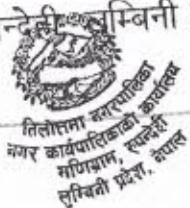 न्देही लुम्बिनी
तिलोत्तमा नगरपालिका
नगर कार्यपालिकाको कार्यालय
मणिग्राम, रुपन्देही
लुम्बिनी प्रदेश, नेपाल